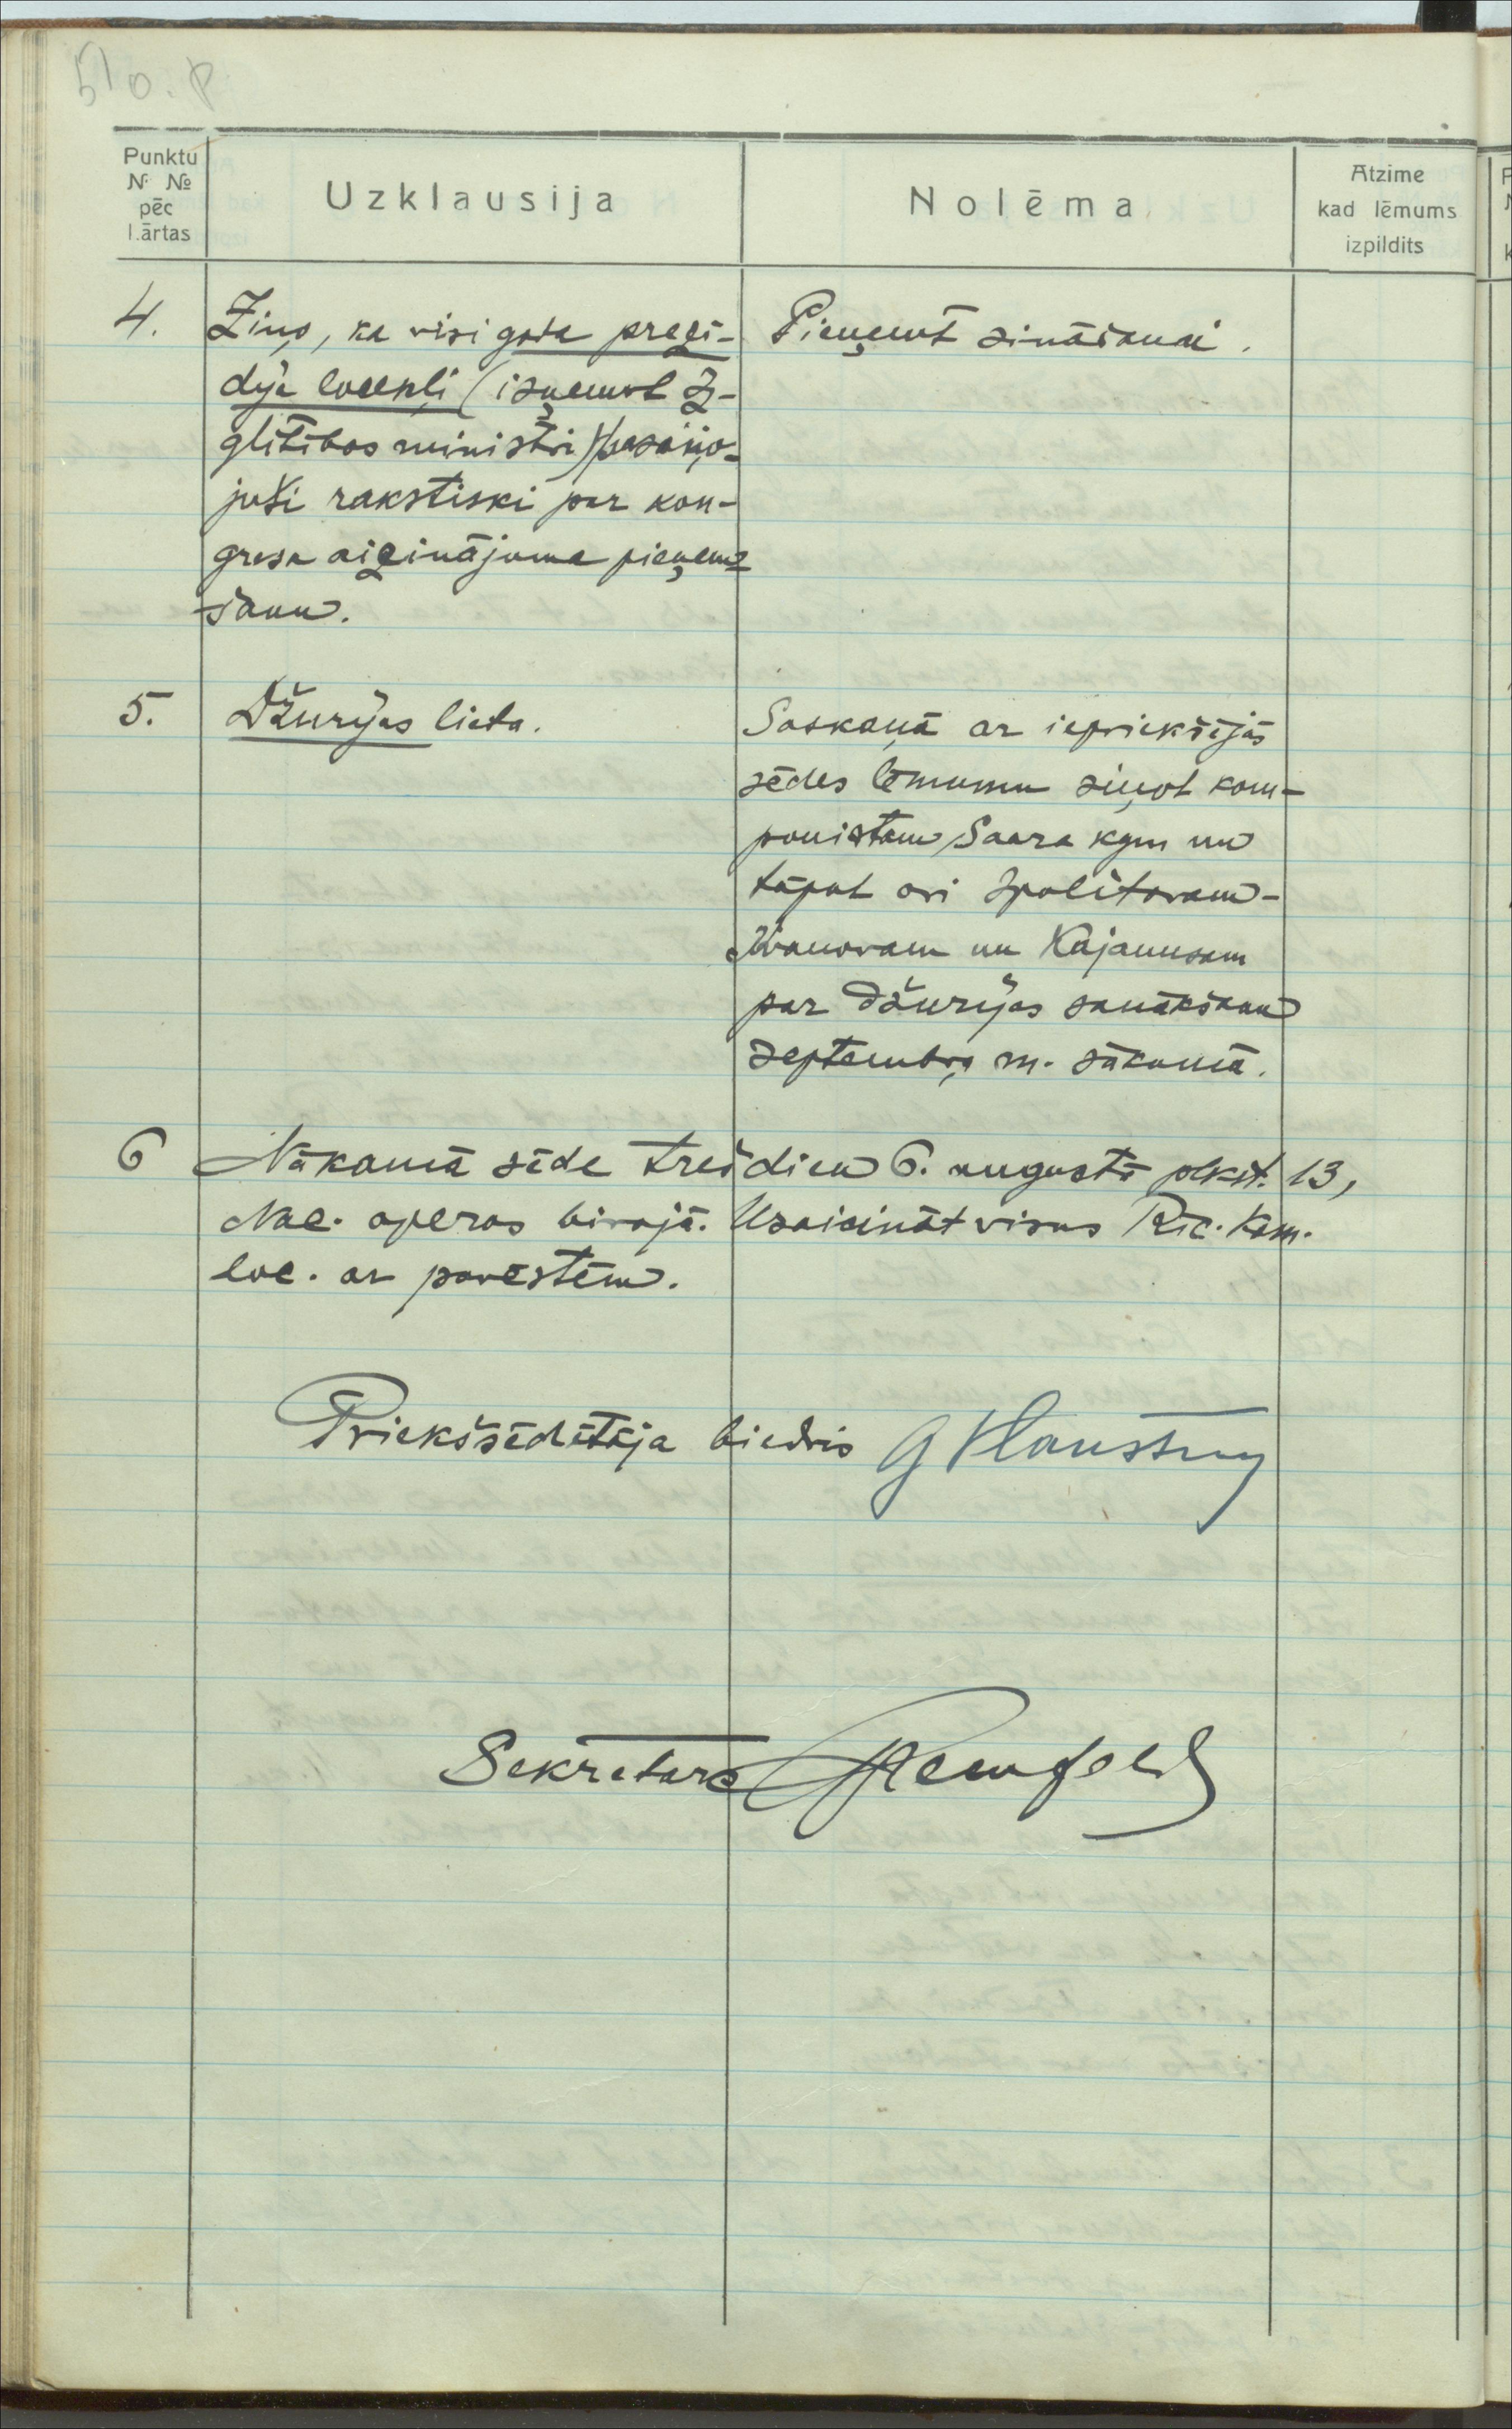 51 o. p.
Punktu
N. №
pēc
kārtas
Uzklausija
Nolēma
Atzime
kad lēmums
izpildits
4.
Ziņo, ka visi goda prezi-
dija locekļi (izņemot Iz-
glītības ministri) paziņo-
juši rakstiski par kon-
gresa aicinājuma pieņem-
šanu.
Pieņemt zināšanai.
5.
Džurijas lieta.
Saskaņā ar iepriekšējās
sēdes lēmumu ziņot kom-
ponistam Saara kgm un
tāpat ari Ipolitovam-
Ivanovam un Kajanusam
par Džurijas sanākšanu
septembŗa m. sākumā.
6
Nākamā sēde trešdien 6. augustā plkst. 13,
Nac. operas birojā. Uzaicināt visus Rīc. Kom.
loc. ar pavēstēm.
Priekšsēdētāja biedris
Sekretars